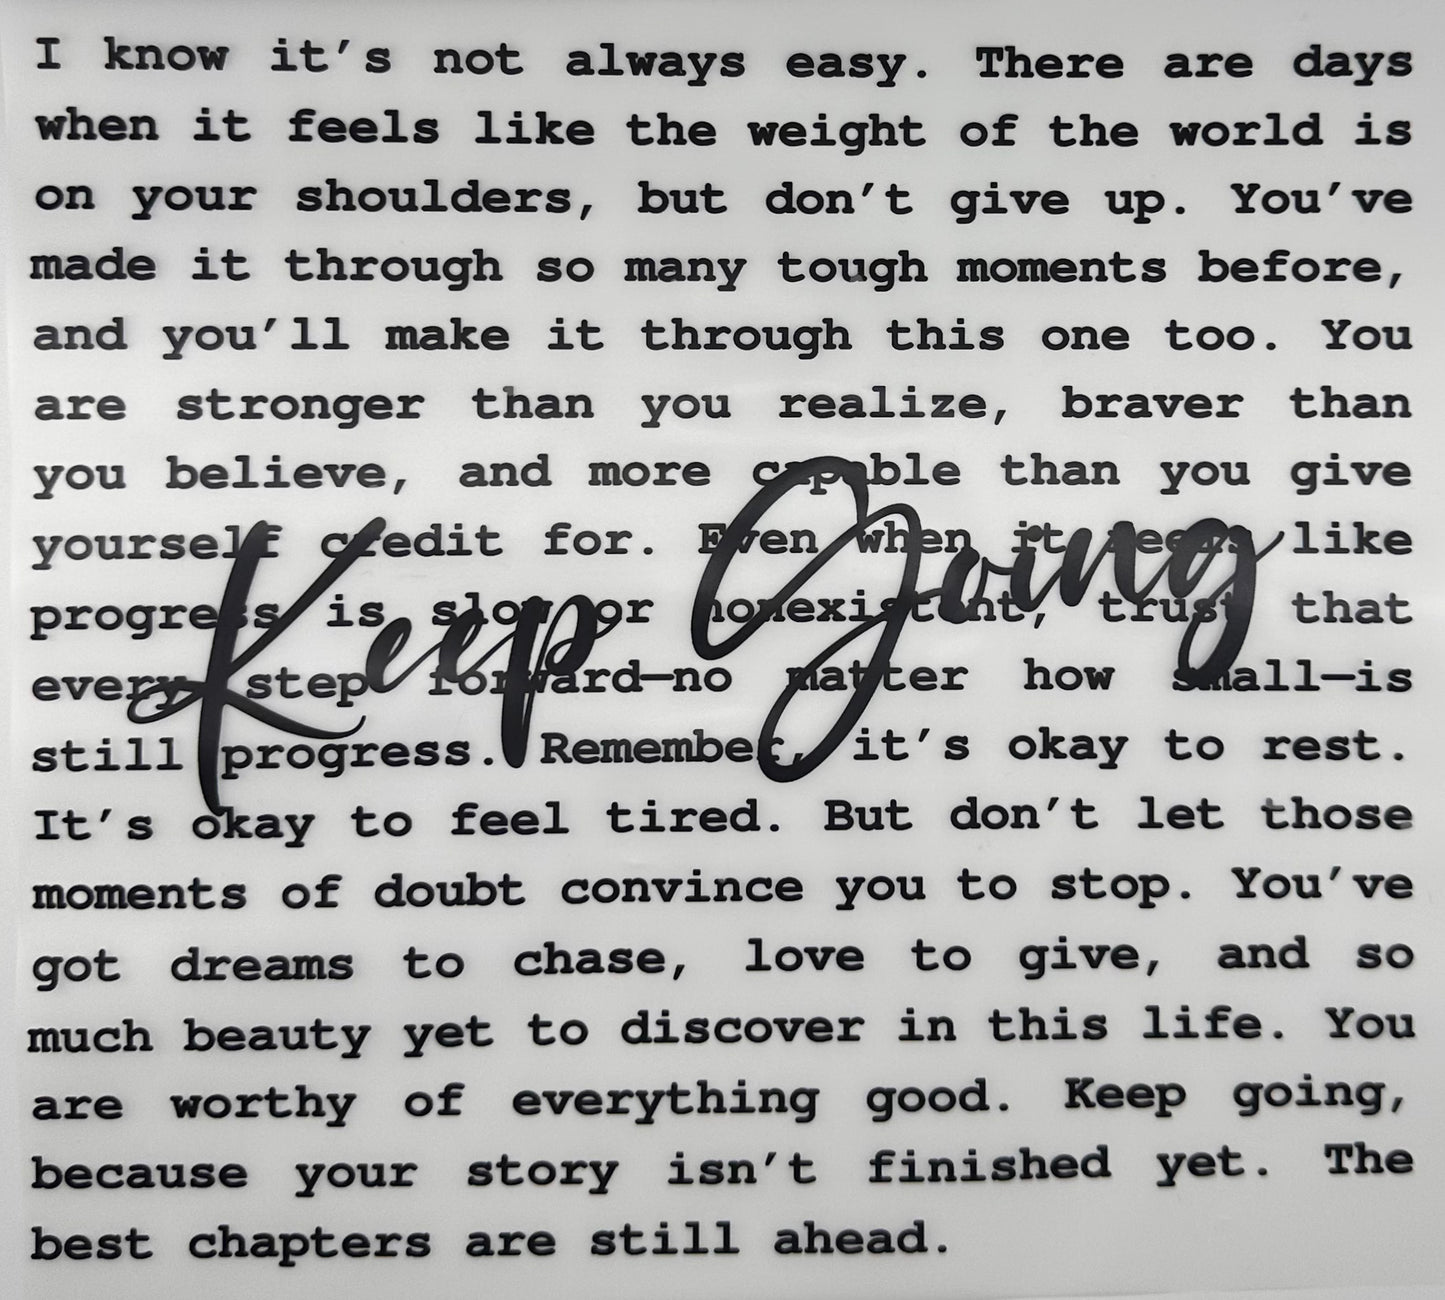 I know it’s not always easy. There are days
when it feels like the weight of the world is
on your shoulders, but don’t give up. You’ve
made it through so many tough moments before,
and you’ll make it through this one too. You
are stronger than you realize, braver than
you believe, and more capable than you give
yourself credit for. Even when it feels like
progress is slow or nonexistent, trust that
every step forward—no matter how small—is
still progress. Remember, it’s okay to rest.
It’s okay to feel tired. But don’t let those
moments of doubt convince you to stop. You’ve
got dreams to chase, love to give, and so
much beauty yet to discover in this life. You
are worthy of everything good. Keep going,
because your story isn’t finished yet. The
best chapters are still ahead.
Keep Going